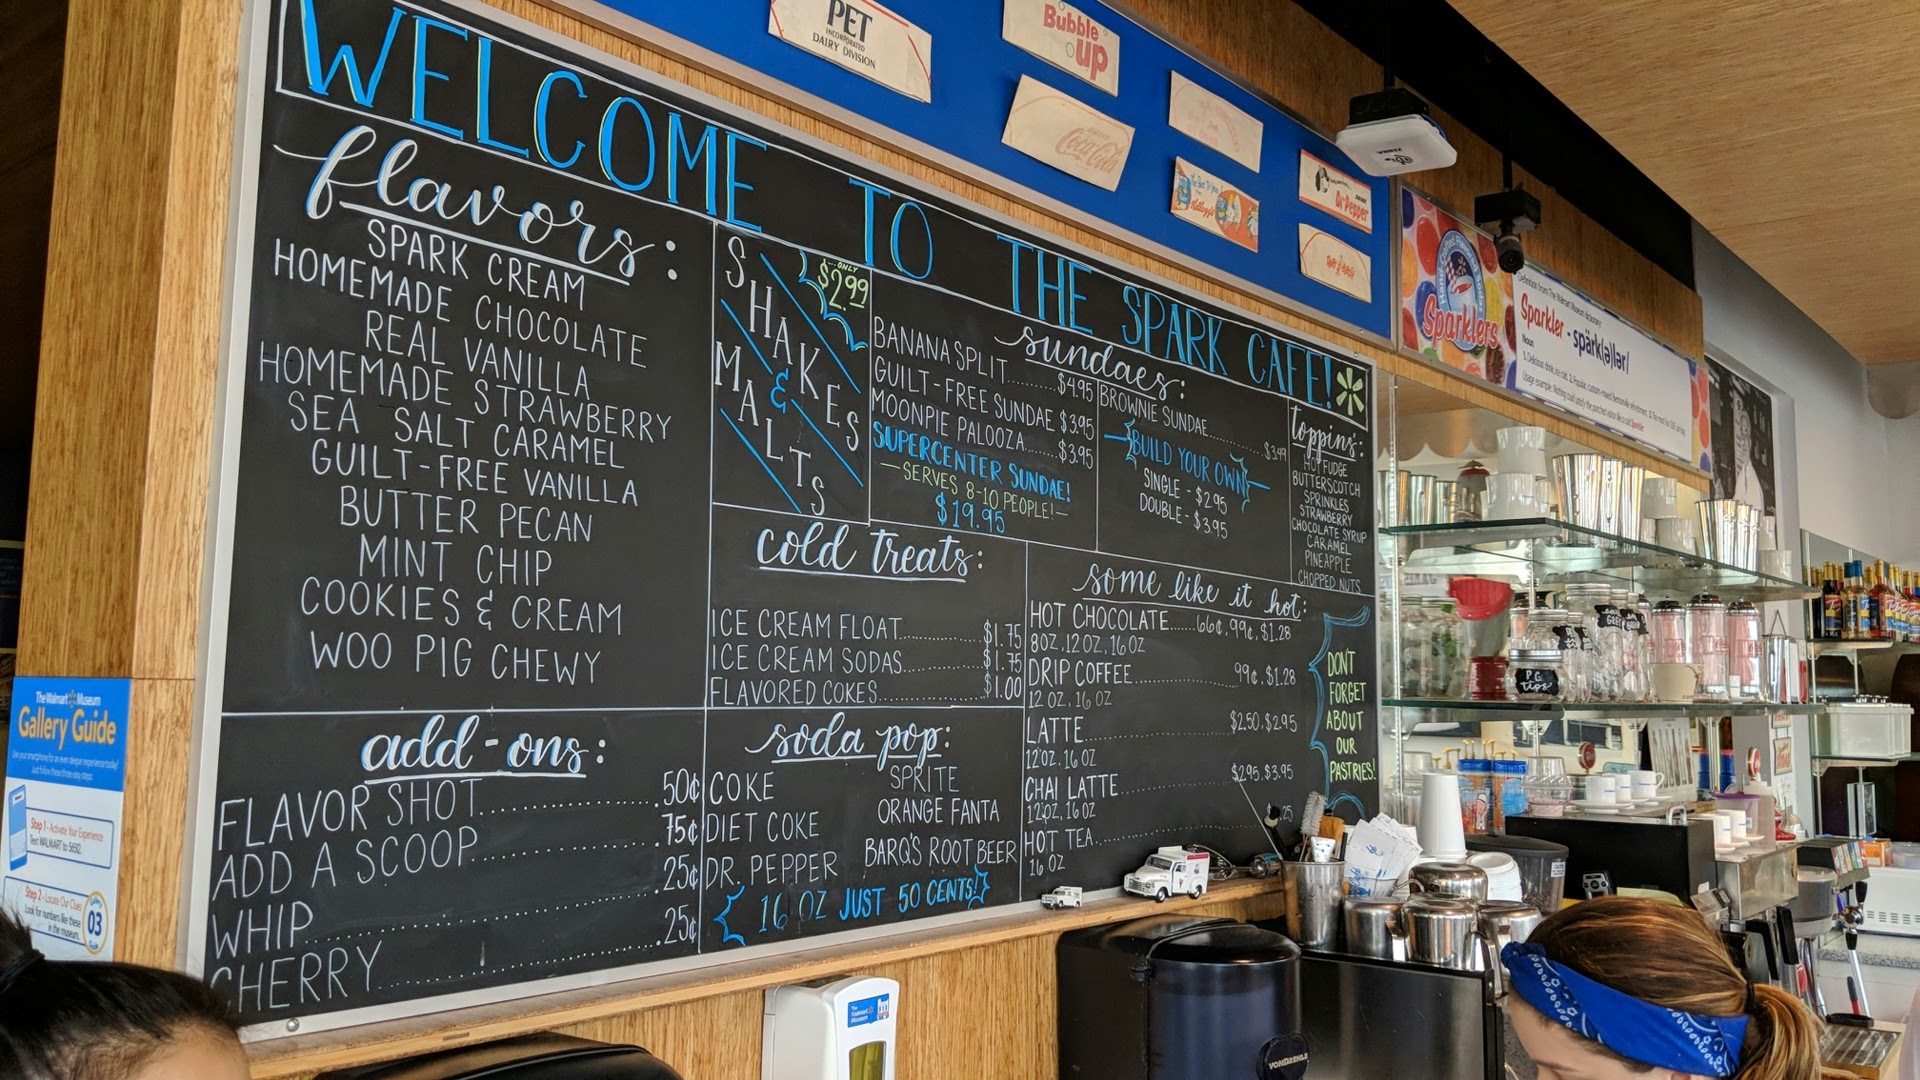 WELCOME TO THE SPARK CAFE!
flavors:
SPARK CREAM
HOMEMADE CHOCOLATE
REAL VANILLA
HOMEMADE STRAWBERRY
SEA SALT CARAMEL
GUILT-FREE VANILLA
BUTTER PECAN
MINT CHIP
COOKIES & CREAM
WOO PIG CHEWY
add-ons:
FLAVOR SHOT 50¢
ADD A SCOOP 75¢
WHIP 25¢
CHERRY 25¢
SHAKES
&
MALTS
ONLY
$2.99
sundaes:
BANANA SPLIT $4.95
GUILT-FREE SUNDAE $3.95
MOONPIE PALOOZA $3.95
SUPERCENTER SUNDAE!
—SERVES 8-10 PEOPLE!—
$19.95
BROWNIE SUNDAE
BUILD YOUR OWN
SINGLE - $2.95
DOUBLE - $3.95
toppins:
HOT FUDGE
BUTTERSCOTCH
SPRINKLES
STRAWBERRY
CHOCOLATE SYRUP
CARAMEL
PINEAPPLE
CHOPPED NUTS
cold treats:
ICE CREAM FLOAT $1.75
ICE CREAM SODAS $1.75
FLAVORED COKES $1.00
soda pop:
COKE
DIET COKE
DR. PEPPER
SPRITE
ORANGE FANTA
BARQ'S ROOT BEER
16 OZ JUST 50 CENTS!
some like it hot:
HOT CHOCOLATE 66¢, 99¢, $1.28
8OZ, 12 OZ, 16 OZ
DRIP COFFEE 99¢, $1.28
12 OZ, 16 OZ
LATTE $2.50, $2.95
12OZ, 16 OZ
CHAI LATTE $2.95, $3.95
12OZ, 16 OZ
HOT TEA
16 OZ
DON'T
FORGET
ABOUT
OUR
PASTRIES!
PET
INCORPORATED
DAIRY DIVISION
Bubble
up
Coca-Cola
Kellogg's
Dr Pepper
Sparklers
Definition from The Walmart Museum dictionary:
Sparkler - spärk(ə)lər/
Noun
The Walmart Museum
Gallery Guide
Use your smartphone for an even deeper experience today!
Just follow these easy steps:
Step 1 - Activate Your Experience
Step 2 - Locate Our Clues
Look for numbers like these
in the museum.
03
The
Walmart
Museum
VONDREHLE